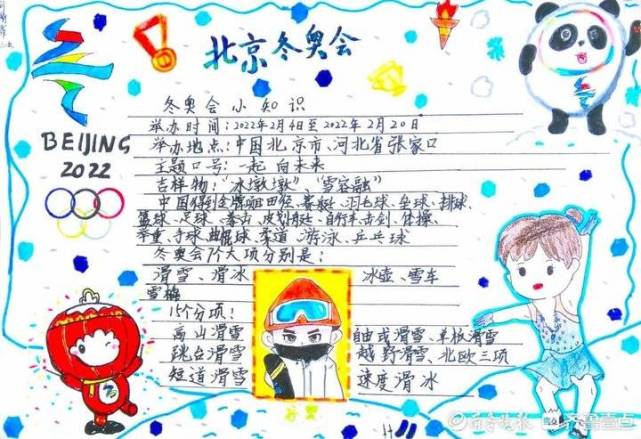 北京冬奥会
BEIJING
2022
冬奥会小知识
举办时间:2022年2月4日至2022年2月20日
举办地点:中国北京市、河北省张家口
主题口号:一起向未来
吉祥物:"冰墩墩"、"雪容融"
田径、 羽毛球、垒球、排球、
篮球、足球、 自行车、击剑、体操、
举重、手球、曲棍球、柔道、游泳、乒乓球
冬奥会7个大项分别是:
滑雪、滑冰 冰壶、雪车
雪橇
15个分项:
高山滑雪 自由式滑雪、单板滑雪
跳台滑雪 越野滑雪、北欧三项
短道滑雪 速度滑冰